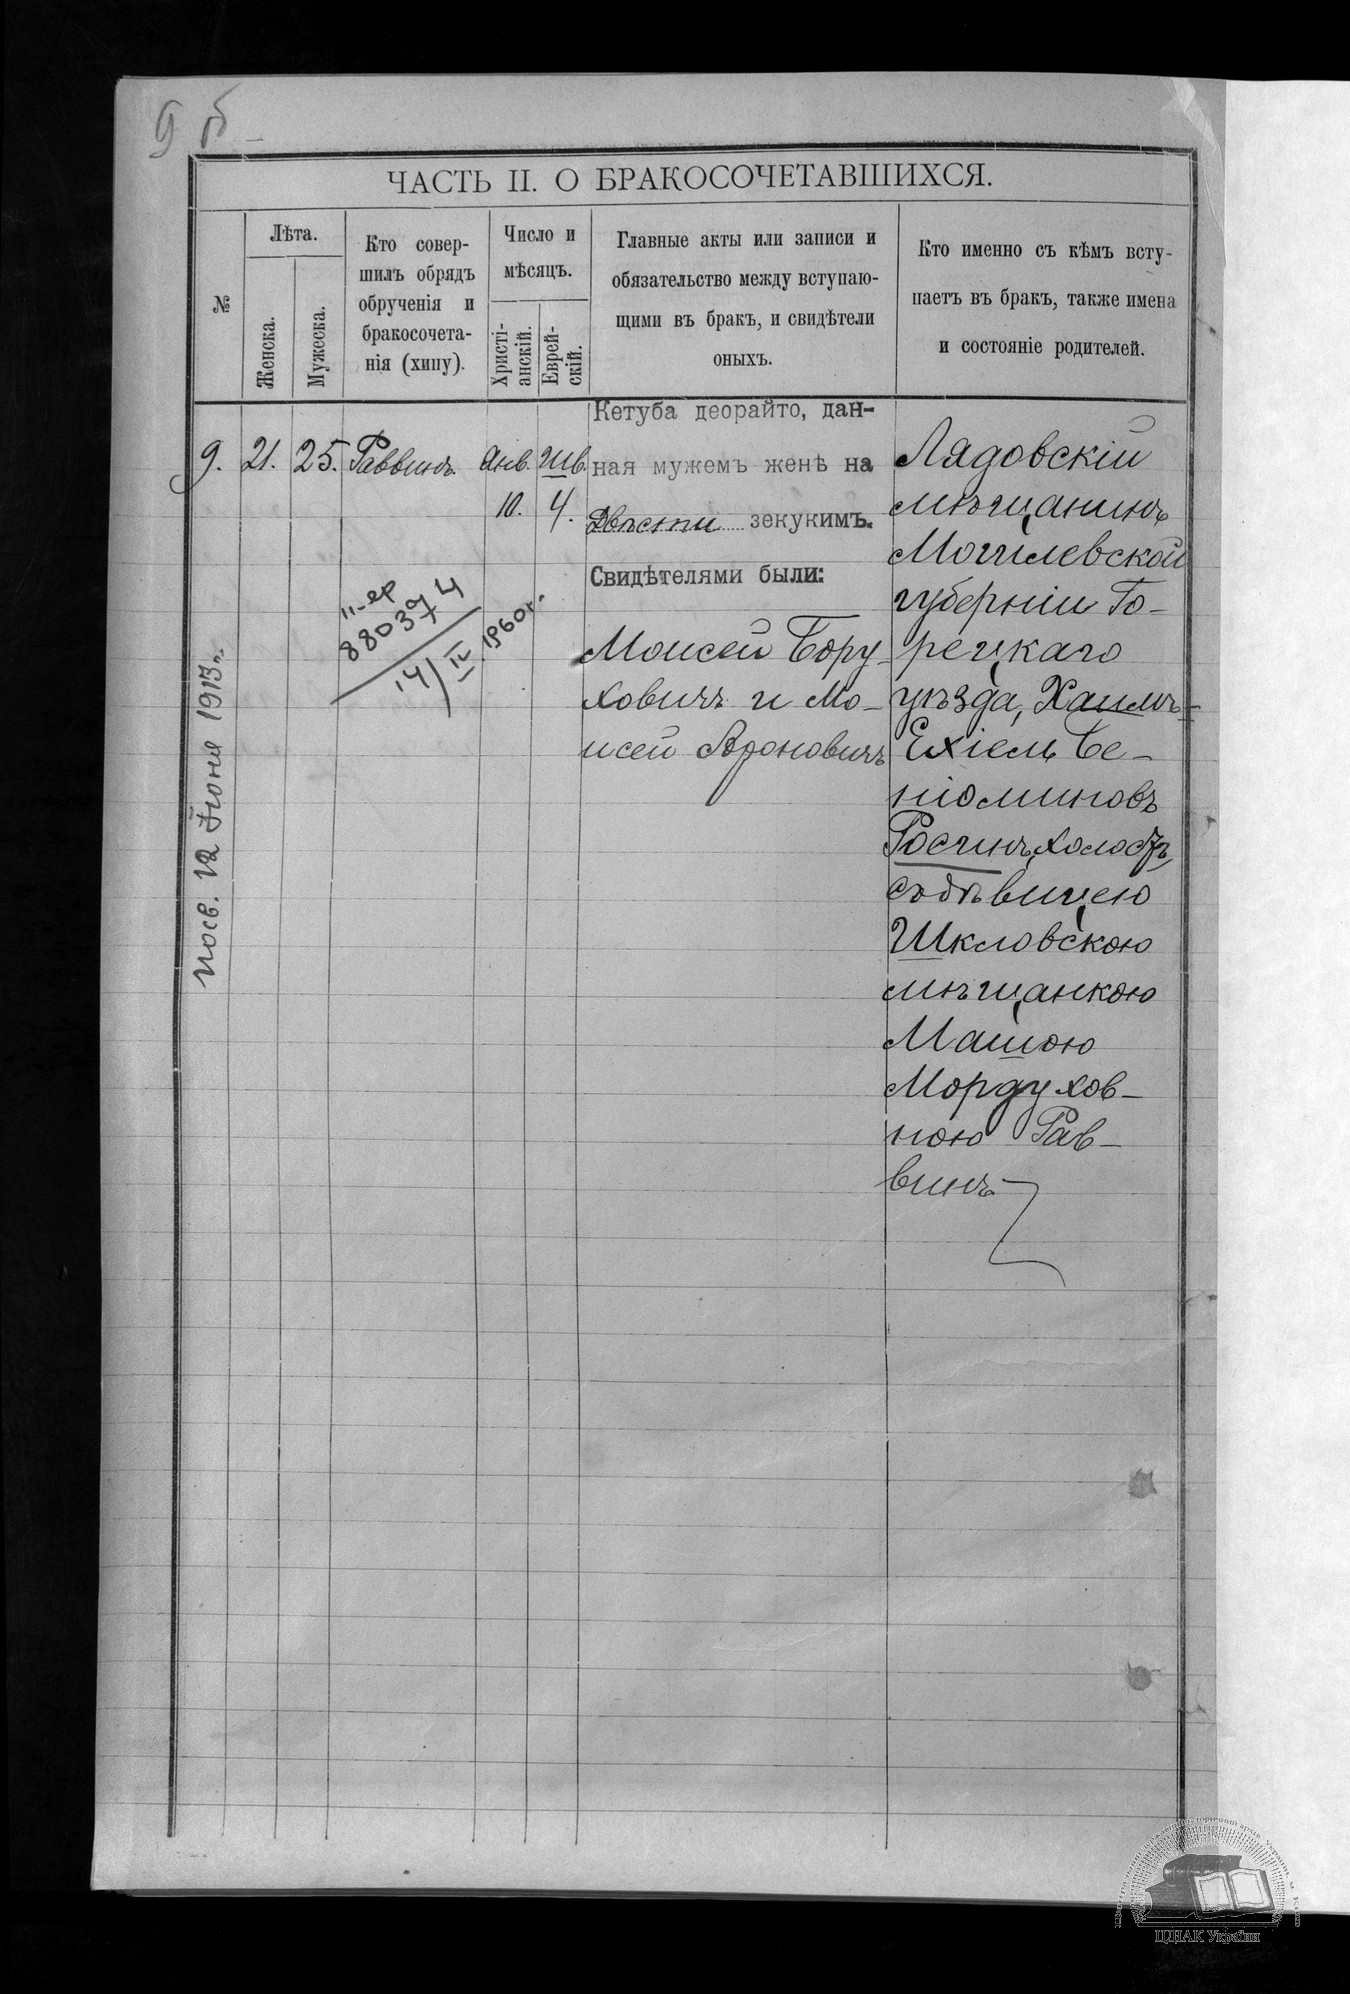 9 б
ЧАСТЬ II. О БРАКОСОЧЕТАВШИХСЯ.
№
Лѣта.
Женска.
Мужеска.
Кто совер-
шилъ обрядъ
обрученія и
бракосочета-
нія (хипу).
Число и
мѣсяцъ.
Христі-
анскій.
Еврей-
скій.
Главные акты или записи и
обязательство между вступаю-
щими въ бракъ, и свидѣтели
оныхъ.
Кто именно съ кѣмъ всту-
паетъ въ бракъ, также имена
и состояніе родителей.
9.
21.
25.
Раввинъ.
Янв.
10.
Шв.
4.
Кетуба деорайто, дан-
ная мужемъ женѣ на
Двѣсти зекукимъ.
Свидѣтелями были:
Моисей Бору-
ховичъ и Мо-
исей Ароновичъ
Лядовскій
мѣщанинъ
Могилевской
губерніи Го-
рецкаго
уѣзда, Хаимъ-
Ехіель Бе-
ніоминовъ
Росинъ, холостъ,
съ дѣвицею
Шкловскою
мѣщанкою
Машою
Мордухов-
ною Рав-
винъ
880374
14/IV 1960г.
12 Іюня 1913г.
ЦДІАК України